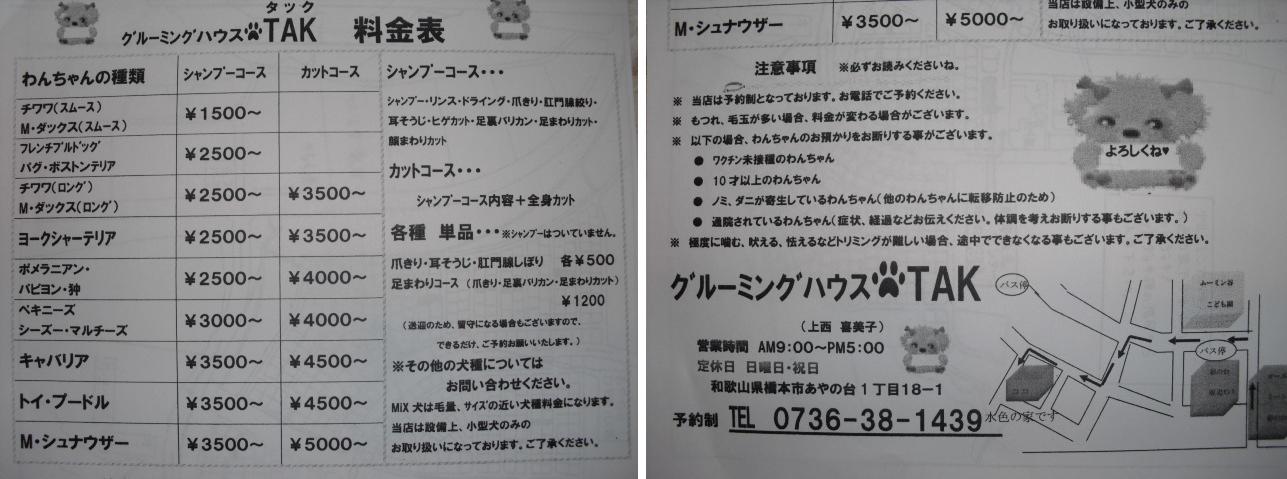 タック
グルーミングハウス TAK 料金表
わんちゃんの種類 シャンプーコース カットコース
チワワ(スムース)
M・ダックス(スムース) ¥1500～
フレンチブルドッグ
パグ・ボストンテリア ¥2500～
チワワ(ロング)
M・ダックス(ロング) ¥2500～ ¥3500～
ヨークシャーテリア ¥2500～ ¥3500～
ポメラニアン・
パピヨン・狆 ¥2500～ ¥4000～
ペキニーズ
シーズー・マルチーズ ¥3000～ ¥4000～
キャバリア ¥3500～ ¥4500～
トイ・プードル ¥3500～ ¥4500～
M・シュナウザー ¥3500～ ¥5000～
シャンプーコース・・・
シャンプー・リンス・ドライング・爪きり・肛門腺絞り・
耳そうじ・ヒゲカット・足裏バリカン・足まわりカット・
顔まわりカット
カットコース・・・
シャンプーコース内容＋全身カット
各種 単品・・・※シャンプーはついていません。
爪きり・耳そうじ・肛門腺しぼり 各¥500
足まわりコース (爪きり・足裏バリカン・足まわりカット)
¥1200
(送迎のため、留守になる場合もございますので、
できるだけ、ご予約お願いいたします。)
※その他の犬種については
お問い合わせください。
MiX犬は毛量、サイズの近い犬種料金になります。
当店は設備上、小型犬のみの
お取り扱いになっております。ご了承ください。
M・シュナウザー ¥3500～ ¥5000～
当店は設備上、小型犬のみの
お取り扱いになっております。ご了承ください。
注意事項 ※必ずお読みくださいね。
※ 当店は予約制となっております。お電話でご予約ください。
※ もつれ、毛玉が多い場合、料金が変わる場合がございます。
※ 以下の場合、わんちゃんのお預かりをお断りする事がございます。
● ワクチン未接種のわんちゃん
● 10才以上のわんちゃん
● ノミ、ダニが寄生しているわんちゃん(他のわんちゃんに転移防止のため)
● 通院されているわんちゃん(症状、経過などお伝えください。体調を考えお断りする事もございます。)
※ 極度に噛む、吠える、怯えるなどトリミングが難しい場合、途中でできなくなる事もございます。ご了承ください。
よろしくね♥
グルーミングハウス TAK
(上西 喜美子)
営業時間 AM9:00～PM5:00
定休日 日曜日・祝日
和歌山県橋本市あやの台1丁目18－1
予約制 TEL 0736-38-1439
水色の家です
バス停
ムーミン谷
こども園
バス停
ココ